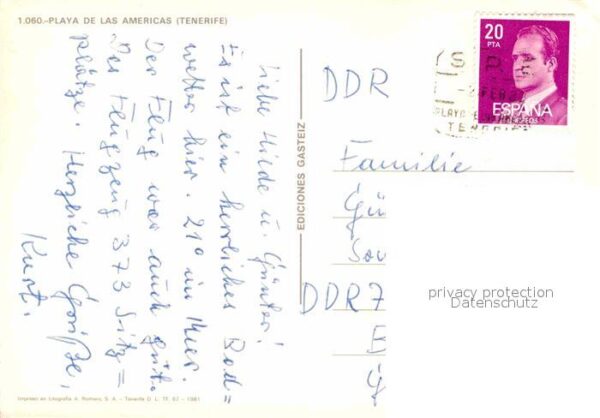 1.060.-PLAYA DE LAS AMERICAS (TENERIFE)
Liebe Hilde u. Günter!
Es ist ein herrliches Bade=
wetter hier. 21° im Meer.
Der Flug war auch gut.
Das Flugzeug 373 Sitz=
plätze. Herzliche Grüße,
Kurt.
EDICIONES GASTEIZ
20
PTA
ESPAÑA
CORREOS
DDR
Familie
Gü
DDR 7
privacy protection
Datenschutz
Impreso en Litografía A. Romero, S. A. - Tenerife D. L. TF. 67 - 1981